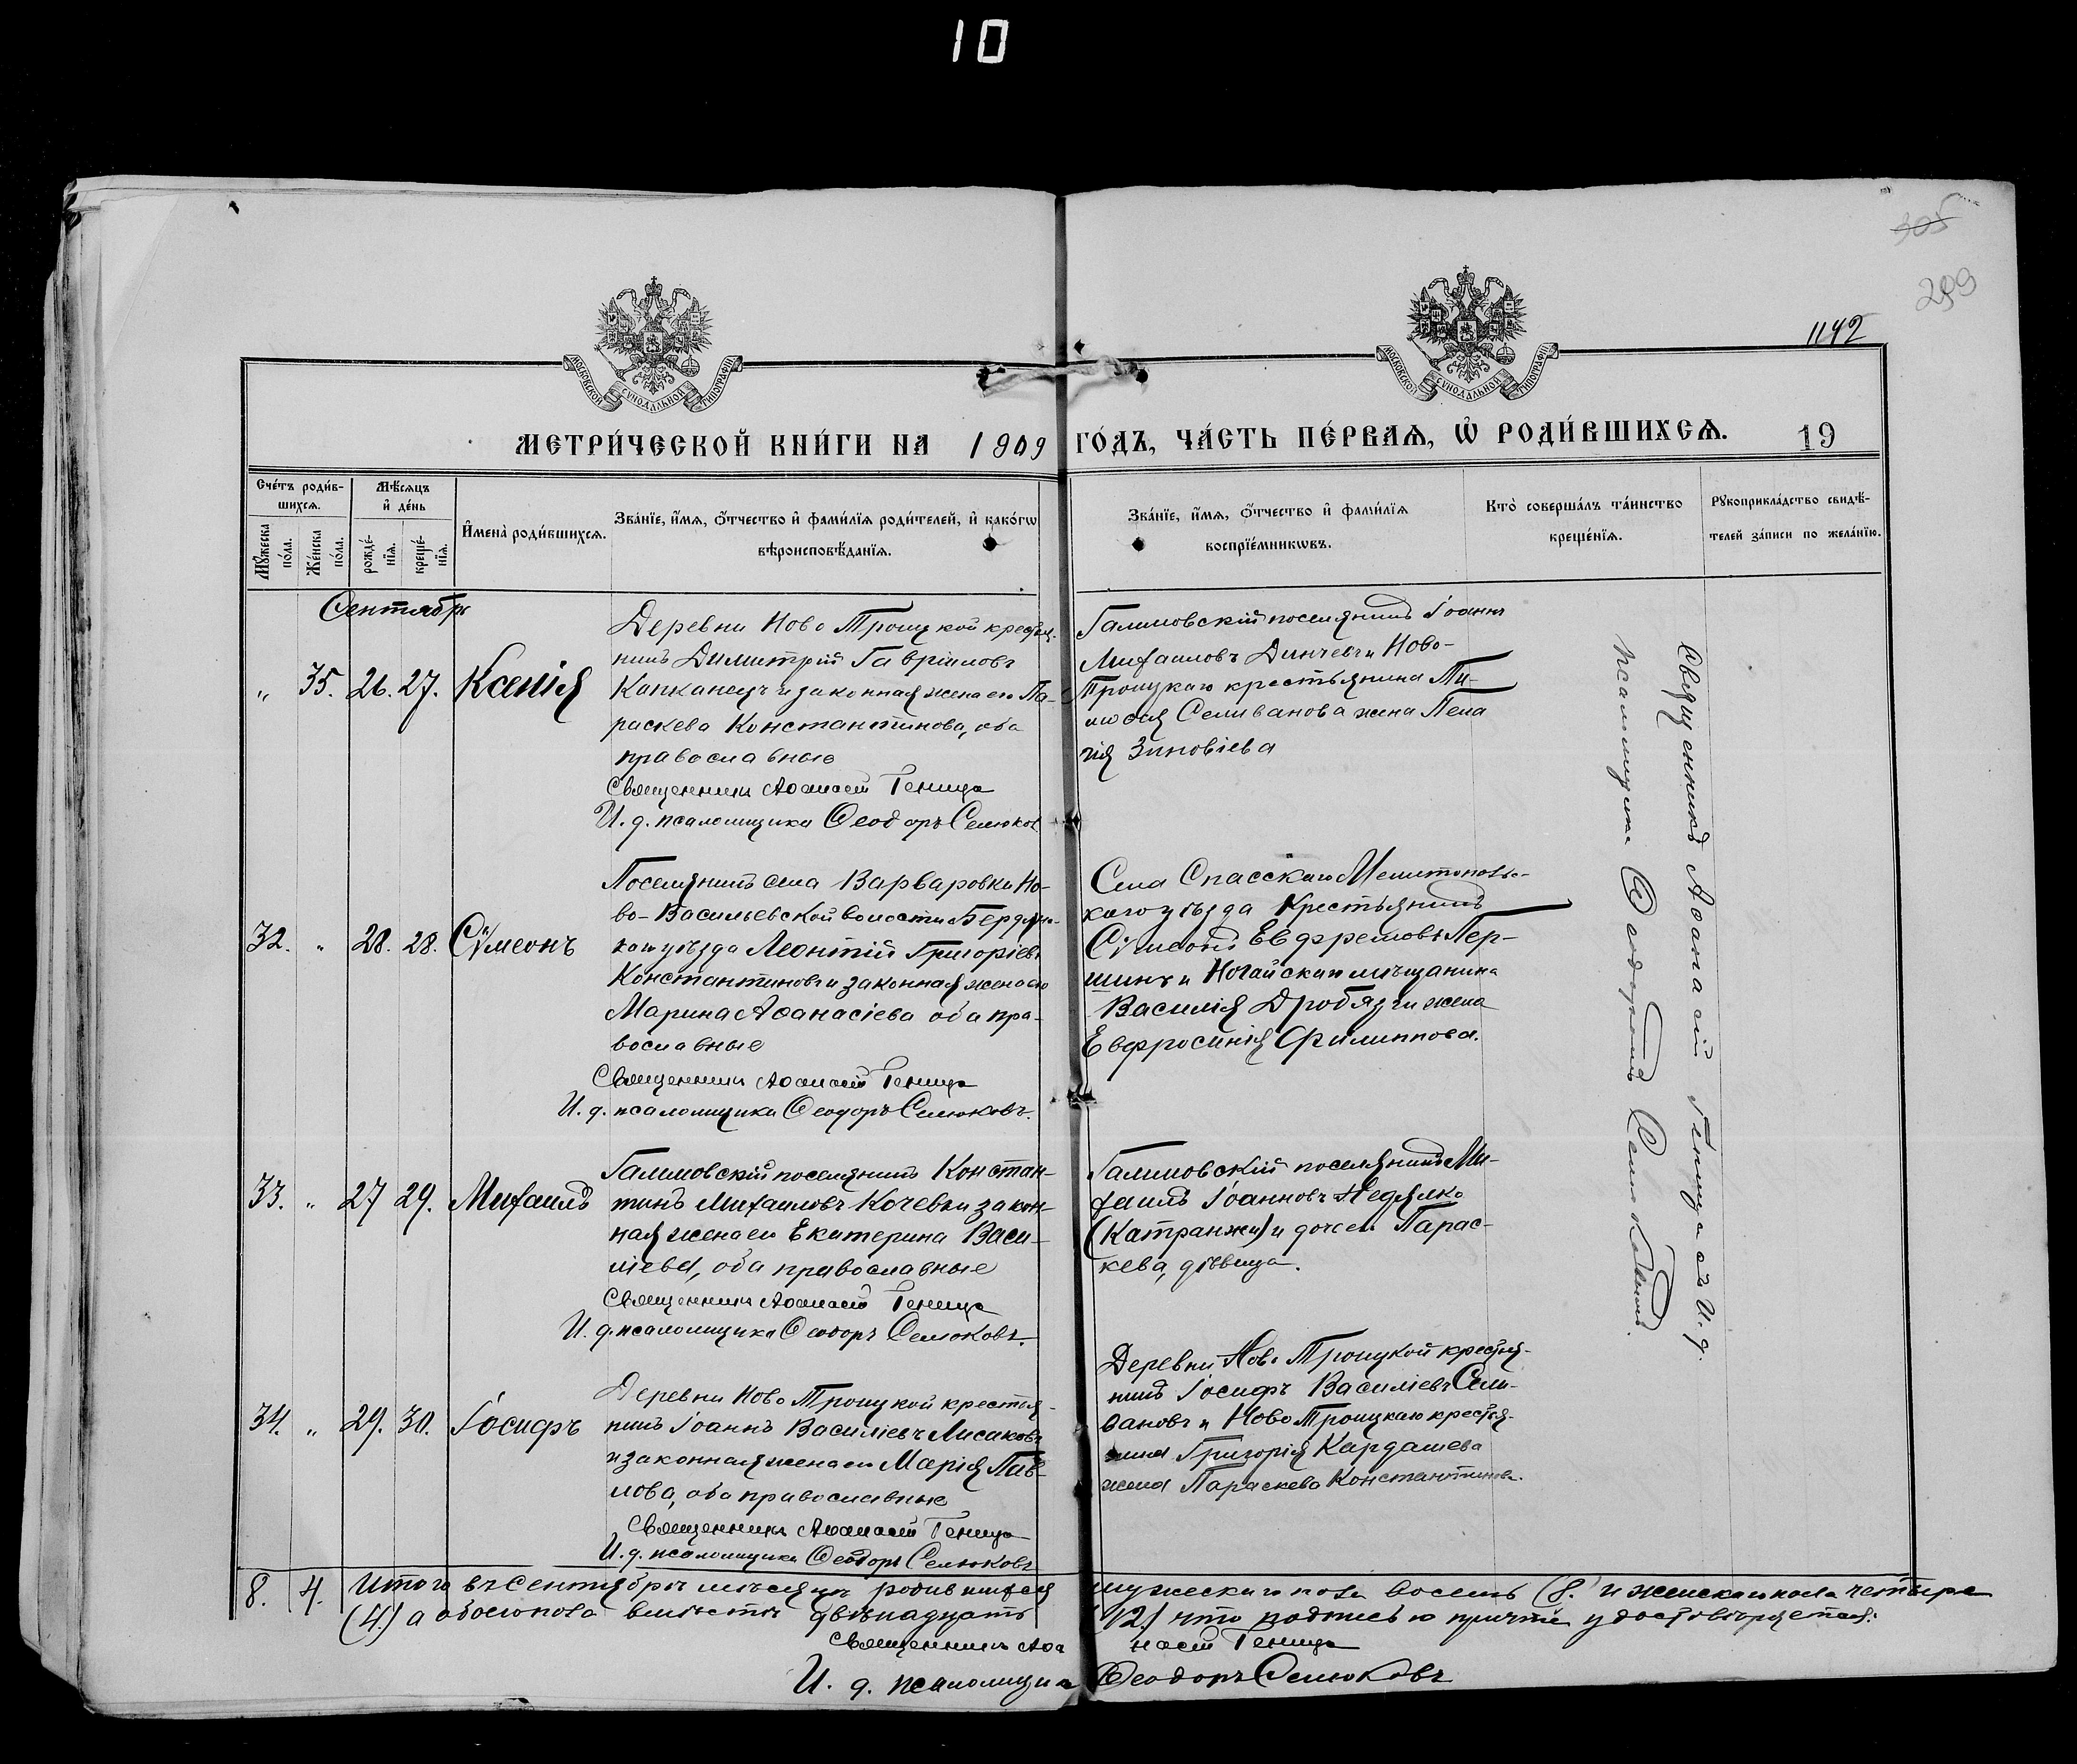 10
305
299
1142
МОСКОВСКОЙ СУНОДАЛЬНОЙ ТИПОГРАФІИ
МОСКОВСКОЙ СУНОДАЛЬНОЙ ТИПОГРАФІИ
МЕТРИ́ЧЕСКОЙ КНИ́ГИ НА 1909 ГО́ДЪ, ЧА́СТЬ ПЕ́РВАѦ, Ѡ҆ РОДИ́ВШИХСѦ. 19
Сче́тъ роди́в-
шихсѧ.
Мꙋ́жеска по́ла.
Же́нска по́ла.
Мѣ́сѧцъ
и҆ де́нь
рожде́-нїѧ.
креще́-нїѧ.
И҆мена̀ роди́вшихсѧ.
Зва́нїе, и҆́мѧ, ѻ҆́тчество и҆ фами́лїѧ роди́телей, и҆ како́гѡ
вѣроисповѣ́данїѧ.
Зва́нїе, и҆́мѧ, ѻ҆́тчество и҆ фами́лїѧ
воспрїе́мникѡвъ.
Кто̀ соверша́лъ та́инство
креще́нїѧ.
Рꙋкоприкла́дство свидѣ́-
телей за́писи по жела́нїю.
Сентябрь
„ 35. 26. 27. Ксенія
Деревни Ново Троицкой крестья-
нинъ Димитрій Гавріиловъ
Капканецъ и законная жена его Па-
раскева Константинова, оба
православные
Священникъ Аѳанасій Геница
И. д. псаломщика Ѳеодоръ Селюковъ
Галимовскій поселянинъ Іоаннъ
Михаиловъ Динчевъ и Ново-
Троицкаго крестьянина Ти-
моѳея Селиванова жена Пела
гія Зиновіева
32. „ 28. 28. Сѵмеонъ
Поселянинъ села Варваровки Но-
во-Васильевской волости Бердянс-
каго уѣзда Леонтій Григоріевъ
Константиновъ и законная жена его
Марина Аѳанасіева оба пра-
вославные
Священникъ Аѳанасій Геница
И. д. псаломщика Ѳеодоръ Селюковъ.
Села Спасскаго Мелитопольс-
каго уѣзда Крестьянинъ
Сѵмеонъ Евфремовъ Пер-
шинъ и Ногайскаго мѣщанина
Василія Дробязги жена
Евфросинія Филиппова.
33. „ 27 29. Михаилъ
Галимовскій поселянинъ Констан-
тинъ Михаиловъ Кочевъ и закон-
ная жена его Екатерина Васи-
ліева, оба православные
Священникъ Аѳанасій Геница
И. д. псаломщика Ѳеодоръ Селюковъ.
Галимовскій поселянинъ Ми-
хаилъ Іоанновъ Недялко
(Катранжи) и дочь его Парас-
кева, дѣвица.
34. „ 29. 30. Іосифъ
Деревни Ново Троицкой крестья-
нинъ Іоаннъ Василіевъ Лисаковъ
и законная жена его Марія Пав-
лова, оба православные
Священникъ Аѳанасій Геница
И. д. псаломщика Ѳеодоръ Селюковъ
Деревни Ново Троицкой крестья-
нинъ Іосифъ Василіевъ Сели-
вановъ и Ново Троицкаго крестья-
нина Григорія Кардашева
жена Параскева Константинова.
Священникъ Аѳанасій Геница съ И. д.
псаломщика Ѳеодоромъ Селюковымъ.
8. 4. Итого въ Сентябрѣ мѣсяцѣ родившихся мужескаго пола восемь (8.) и женскаго пола четыре
(4.) а обоего пола вмѣстѣ двѣнадцать (12.) что подписью причта удостовѣряется:
Священникъ Аѳанасій Геница
И. д. псаломщика Ѳеодоръ Селюковъ